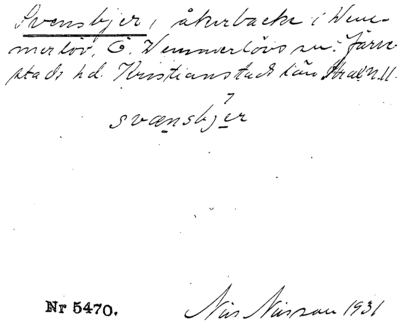 Svensbjer, åkerbacke i Vem-
merlöv, Ö. Vemmerlövs sn. Järre-
stads hd. Kristianstads län
svænsbjer
Nr 5470. Nils Nilsson 1931